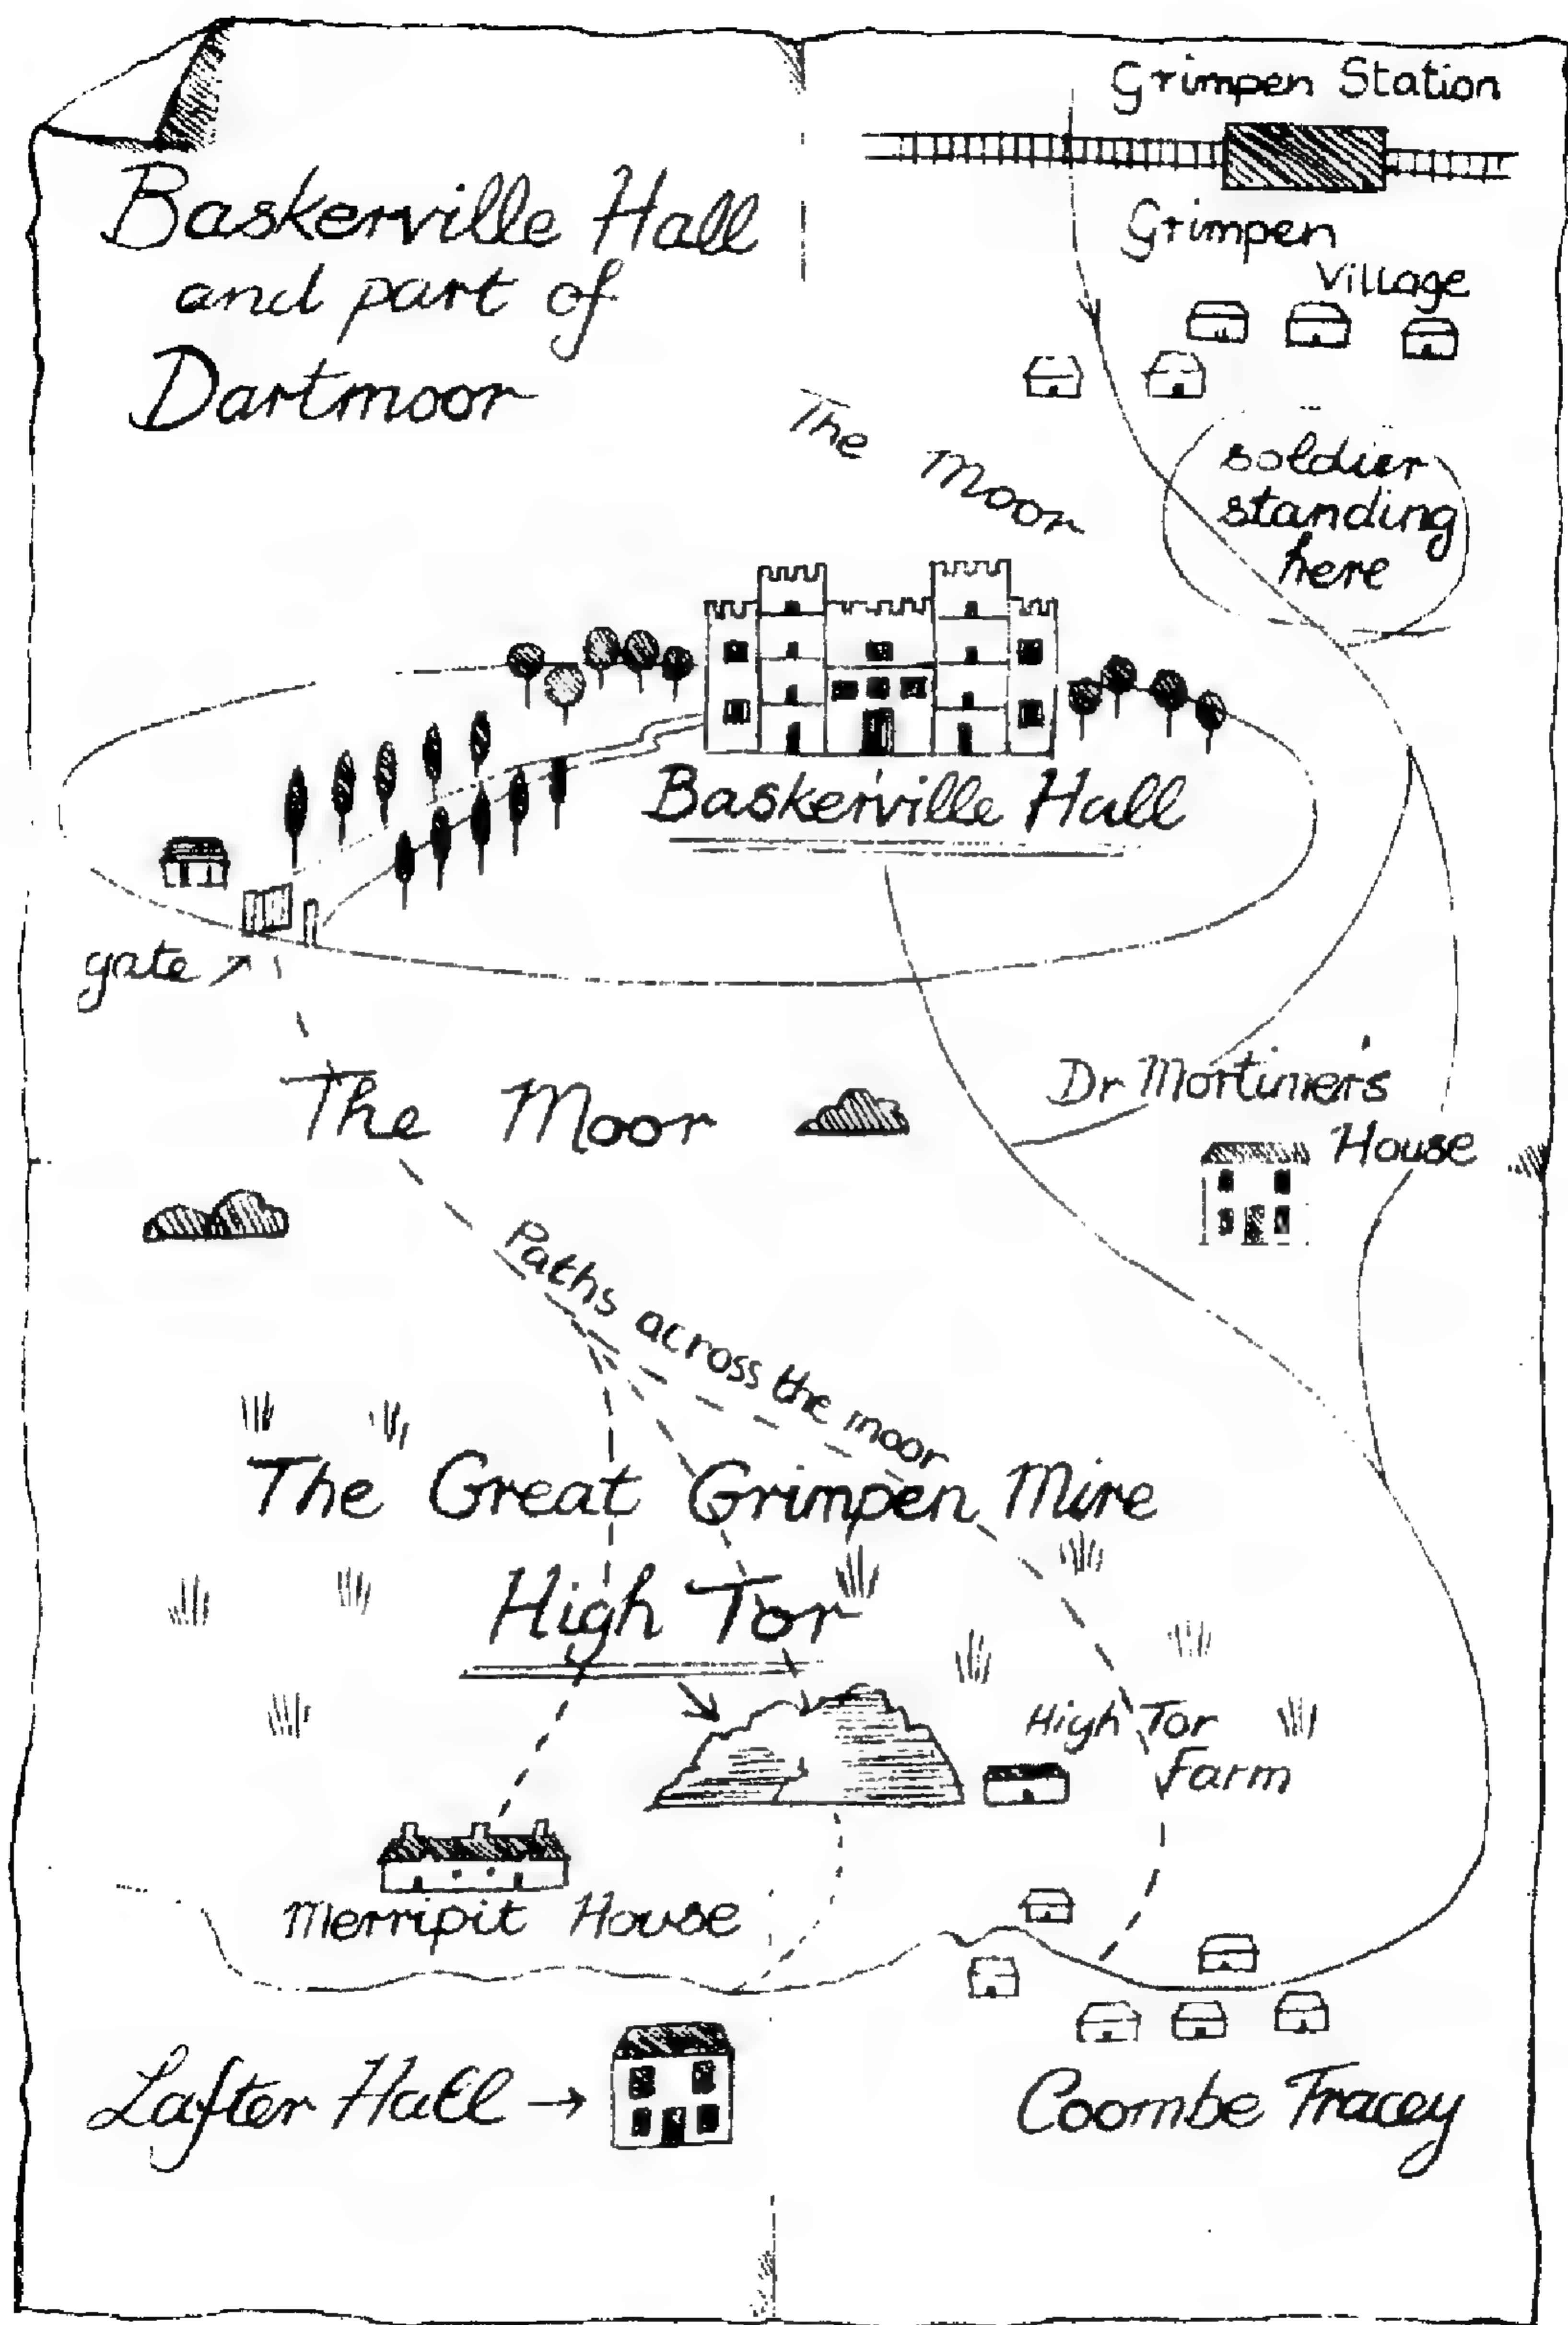 Grimpen Station
Baskerville Hall
and part of
Dartmoor
Grimpen
Village
The Moor
soldier
standing
here
Baskerville Hall
gate
The Moor
Dr Mortimer's
House
Paths across the moor
The Great Grimpen Mire
High Tor
High Tor
Farm
Merripit House
Lafter Hall →
Coombe Tracey